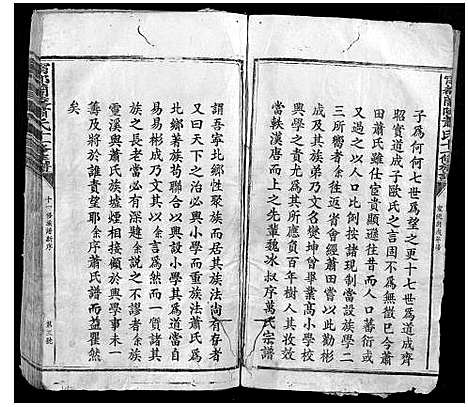 子爲何何七世爲望之更十七世爲道成齊
昭實道成子歐氏之言固不爲無徵已今蕭
田蕭氏雖仕宦貴顯遜往昔而人口蕃衍或
又過之以人口爲比例按諸現制當設族學二
三所嚮者余往返省會經蕭田嘗以此勤彬
成及其族弟乃文名燮坤曾畢業高小學校
興學之責尤其所宜負百年樹人其效果又
當軼漢唐而上之先輩魏冰叔序萬氏宗譜
謂吾寧北鄉性聚族而居其族法尚有存者
又曰天下之治必興小學而重族法蕭氏爲
北鄉著族苟聯合以興設小學其爲道當自
易易彬成乃文其以余言爲然而一償其爲
族之長老當必有深韙余言者余家北鄉之
靈溪與蕭氏族墟煙相接顧於興學事未一
籌及將於誰責望耶余序蕭氏譜而益瞿然
矣
十一修族譜新序
第三號